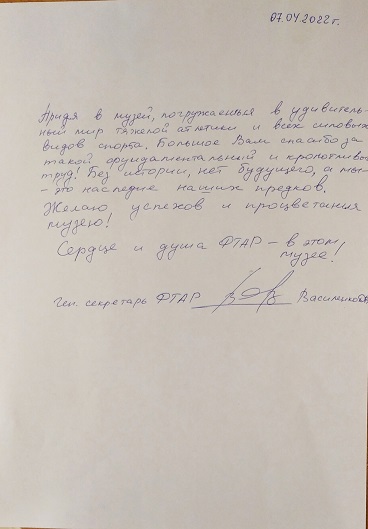 07.04.2022г.
Придя в музей, погружаешься в удивитель-
ный мир тяжелой атлетики и всех силовых
видов спорта. Большое Вам спасибо за
такой фундаментальный и кропотливый
труд! Без истории, нет будущего, а мы-
- это наследие наших предков.
Желаю успехов и процветания
музею!
Сердце и душа ФТАР - в этом
музее!
Ген. секретарь ФТАР Василенков